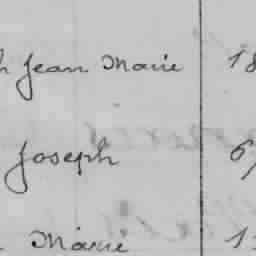 h Jean Marie 18
Joseph 6
Marie 1